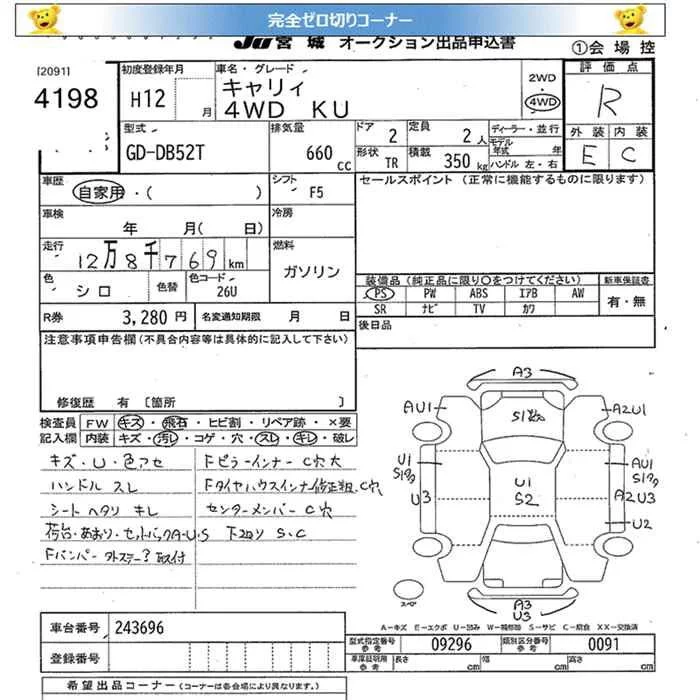 完全ゼロ切りコーナー
JU 宮城 オークション出品申込書
①会場控
[2091]
4198
初度登録年月
H12 月
車名・グレード
キャリィ
4WD KU
2WD
4WD
評価点
R
外装 内装
E C
型式
GD-DB52T
排気量
660 cc
ドア 2
定員 2人
形状 TR
積載 350 kg
ディーラー・並行
モデル年式 年
ハンドル 左・右
車歴
自家用・( )
シフト F5
セールスポイント (正常に機能するものに限ります)
車検
年 月( 日)
冷房
走行
12万8千769 km
燃料
ガソリン
色
シロ
色替
色コード
26U
装備品(純正品に限り○をつけてください)
PS PW ABS エアB AW
SR ナビ TV カワ
新車保証書
有・無
R券 3,280円
名変通知期限 月 日
後日品
注意事項申告欄(不具合内容等は具体的に記入して下さい)
修復歴 有 [箇所 ]
検査員記入欄
FW キズ・飛石・ヒビ割・リペア跡・×要
内装 キズ・汚れ・コゲ・穴・スレ・キレ・破レ
キズ・U・色アセ
Fピラーインナー C穴大
ハンドル スレ
Fタイヤハウスインナー修正粗.C穴
シート ヘタリ キレ
センターメンバー C穴
荷台・あおり・セットバックA・U・S
下回り S.C
Fバンパー ステー? 取付
A3
AU1
A2U1
U1
U3
U1
S2
AU1
A2U3
U2
A3
U3
スペア
A−キズ E−エクボ U−凹み W−補修跡 S−サビ C−腐食 XX−交換済
車台番号 243696
登録番号
型式指定番号 参考 09296
類別区分番号 参考 0091
車庫証明用 参考 長さ cm 幅 cm 高さ cm
希望出品コーナー (コーナーは各会場により異なります。)